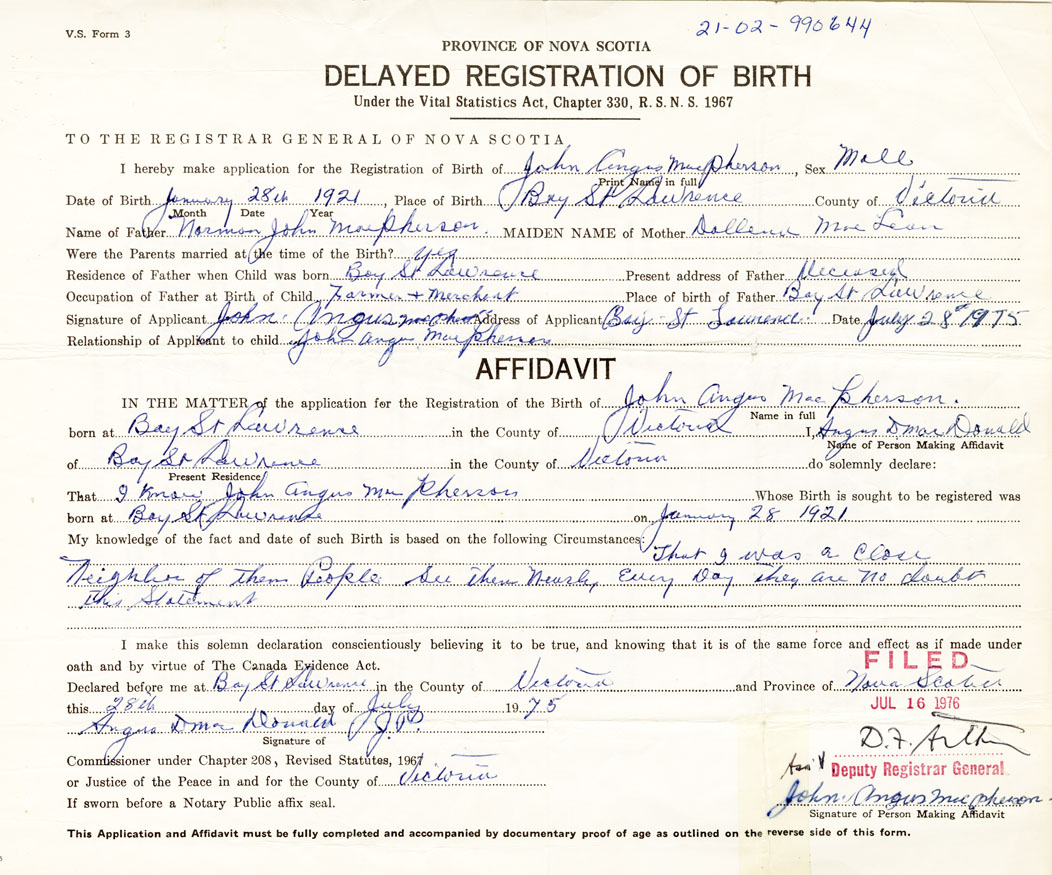 21-02-990644
V.S. Form 3
PROVINCE OF NOVA SCOTIA
DELAYED REGISTRATION OF BIRTH
Under the Vital Statistics Act, Chapter 330, R.S.N.S. 1967
TO THE REGISTRAR GENERAL OF NOVA SCOTIA
I hereby make application for the Registration of Birth of John Angus MacPherson, Sex Male
Print Name in full
Date of Birth January 28th 1921, Place of Birth Bay St Lawrence County of Victoria
Month Date Year
Name of Father Norman John MacPherson. MAIDEN NAME of Mother Dollena MacLean
Were the Parents married at the time of the Birth? yes
Residence of Father when Child was born Bay St Lawrence Present address of Father Deceased
Occupation of Father at Birth of Child Farmer + Merchant Place of birth of Father Bay St Lawrence
Signature of Applicant John. Angus MacPherson Address of Applicant Bay - St Lawrence. Date July 28th 1975
Relationship of Applicant to child John Angus MacPherson
AFFIDAVIT
IN THE MATTER of the application for the Registration of the Birth of John Angus MacPherson.
Name in full
born at Bay St Lawrence in the County of Victoria I, Angus D MacDonald
Name of Person Making Affidavit
of Bay St Lawrence in the County of Victoria do solemnly declare:
Present Residence
That I Know John Angus MacPherson Whose Birth is sought to be registered was
born at Bay St Lawrence on January 28 1921
My knowledge of the fact and date of such Birth is based on the following Circumstances:
That I was a Close
Neighbor of them People. See them Nearly Every Day They are No doubt
this Statement
I make this solemn declaration conscientiously believing it to be true, and knowing that it is of the same force and effect as if made under
oath and by virtue of The Canada Evidence Act.
FILED
Declared before me at Bay St Lawrence in the County of Victoria and Province of Nova Scotia
this 28th day of July 1975
JUL 16 1976
Angus D MacDonald J.P.
Signature of
D.F.
Commissioner under Chapter 208, Revised Statutes, 1967
Deputy Registrar General
or Justice of the Peace in and for the County of Victoria
John. Angus MacPherson
If sworn before a Notary Public affix seal.
Signature of Person Making Affidavit
This Application and Affidavit must be fully completed and accompanied by documentary proof of age as outlined on the reverse side of this form.